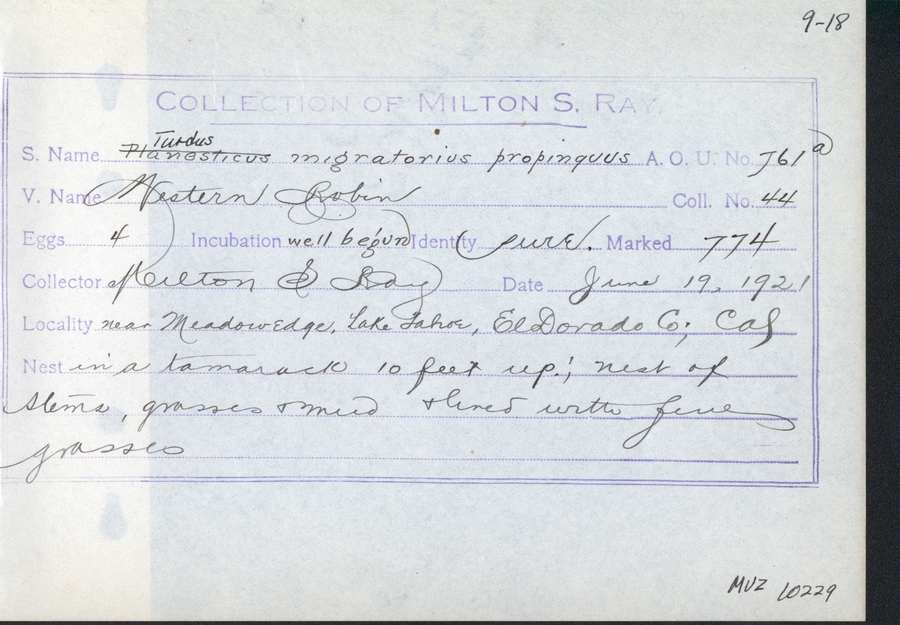 9-18
COLLECTION OF MILTON S. RAY.
Turdus
S. Name Planesticus migratorius propinquus A. O. U. No. 761 a)
V. Name Western Robin Coll. No. 44
Eggs 4 Incubation well begun Identity sure. Marked 774
Collector Milton S Ray Date June 19, 1921
Locality near Meadowedge, Lake Tahoe, El Dorado Co; Cal
Nest in a tamarack 10 feet up.; nest of
stems, grasses & mud & lined with fine
grasses
MVZ 10229